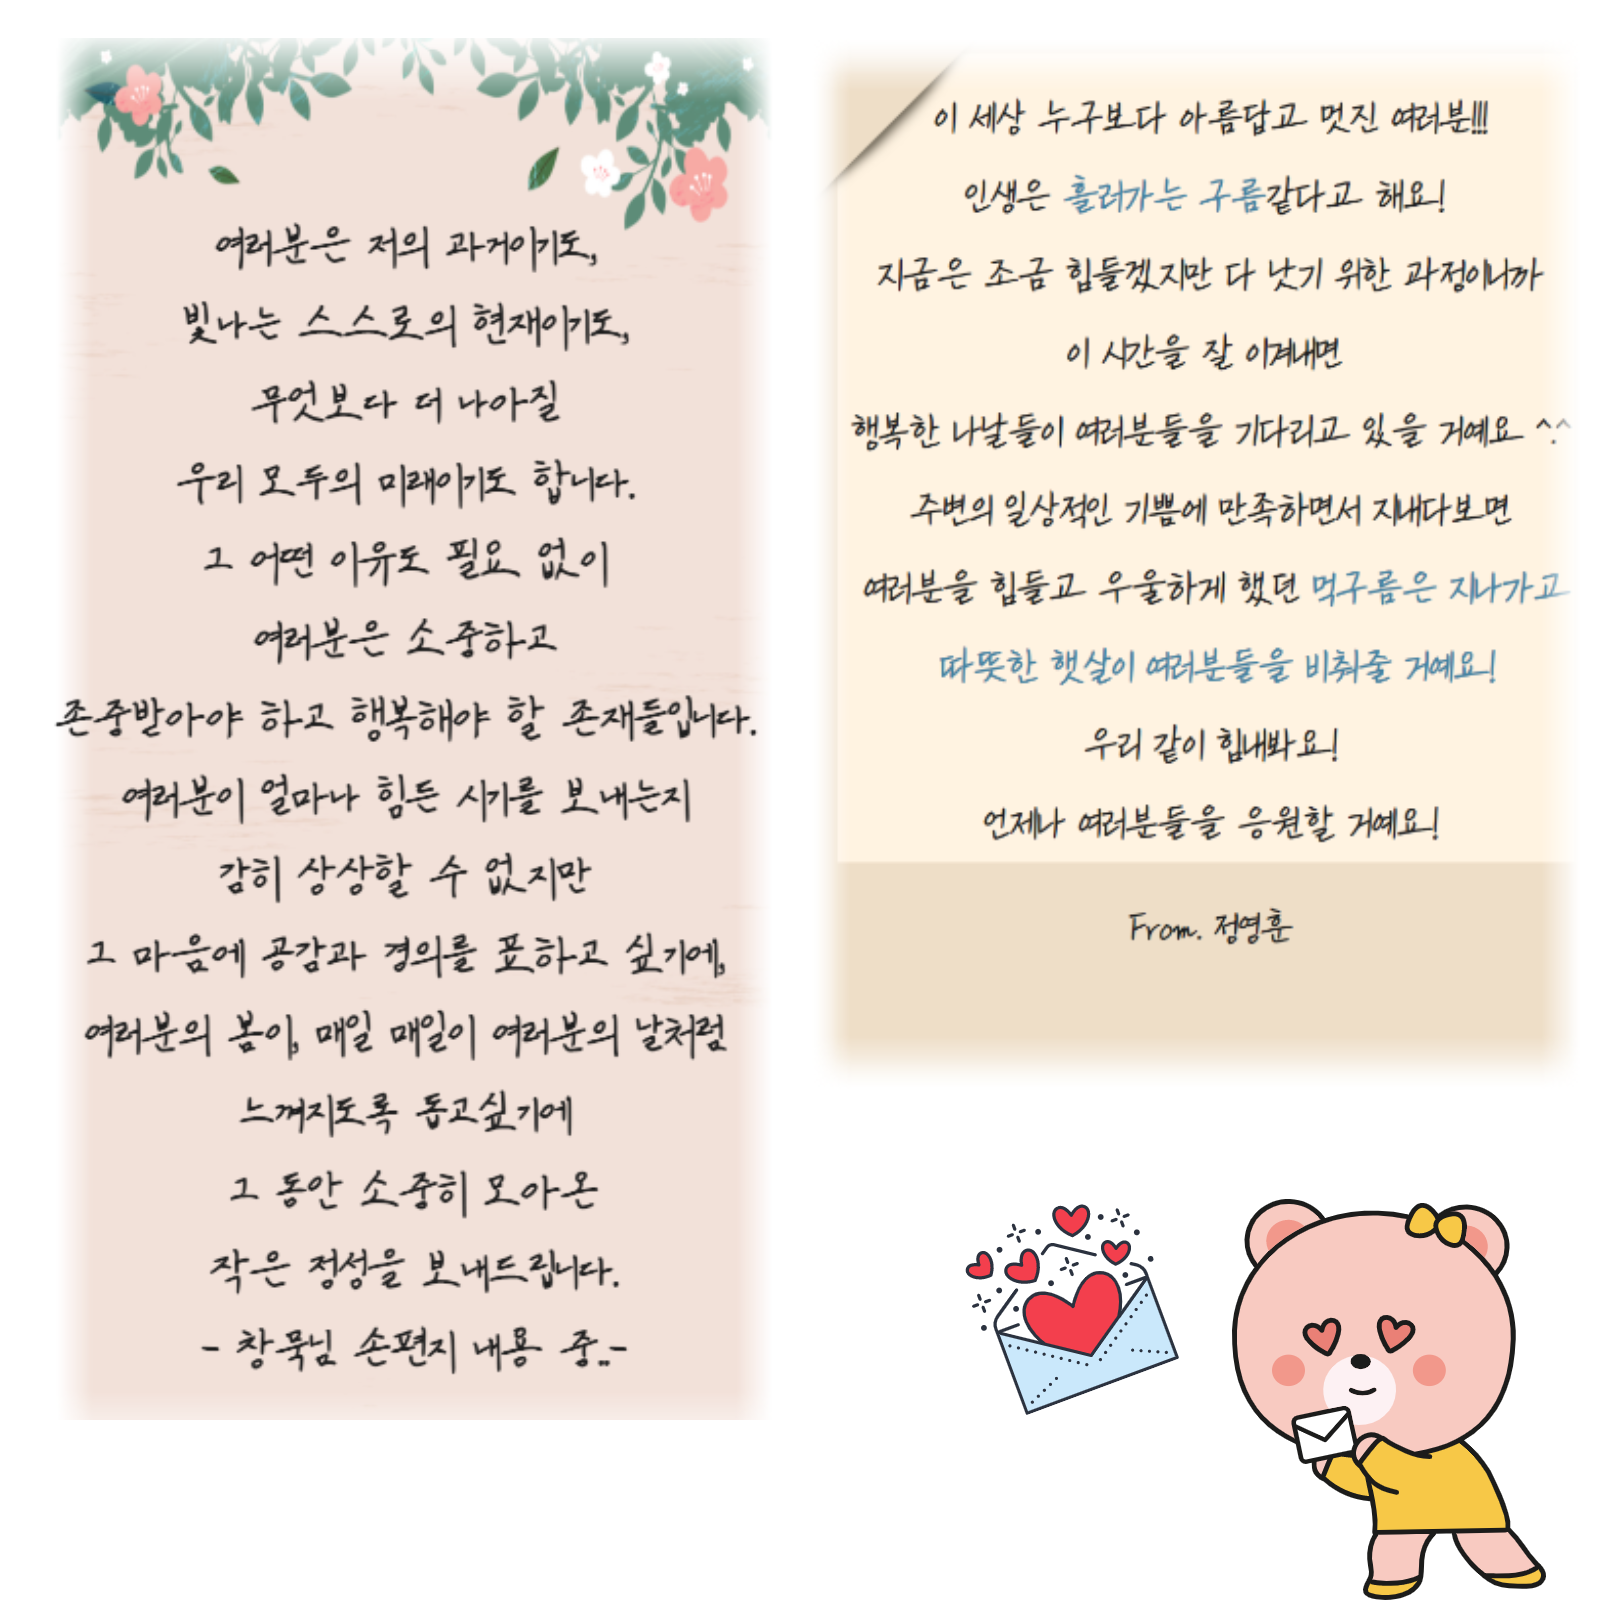 여러분은 저의 과거이기도,
빛나는 스스로의 현재이기도,
무엇보다 더 나아질
우리 모두의 미래이기도 합니다.
그 어떤 이유도 필요 없이
여러분은 소중하고
존중받아야 하고 행복해야 할 존재들입니다.
여러분이 얼마나 힘든 시기를 보내는지
감히 상상할 수 없지만
그 마음에 공감과 경의를 표하고 싶기에,
여러분의 봄이, 매일 매일이 여러분의 날처럼
느껴지도록 돕고싶기에
그 동안 소중히 모아온
작은 정성을 보내드립니다.
- 창묵님 손편지 내용 중..-
이 세상 누구보다 아름답고 멋진 여러분!!!
인생은 흘러가는 구름같다고 해요!
지금은 조금 힘들겠지만 다 낫기 위한 과정이니까
이 시간을 잘 이겨내면
행복한 나날들이 여러분들을 기다리고 있을 거예요 ^.^
주변의 일상적인 기쁨에 만족하면서 지내다보면
여러분을 힘들고 우울하게 했던 먹구름은 지나가고
따뜻한 햇살이 여러분들을 비춰줄 거예요!
우리 같이 힘내봐요!
언제나 여러분들을 응원할 거예요!
From. 정영훈